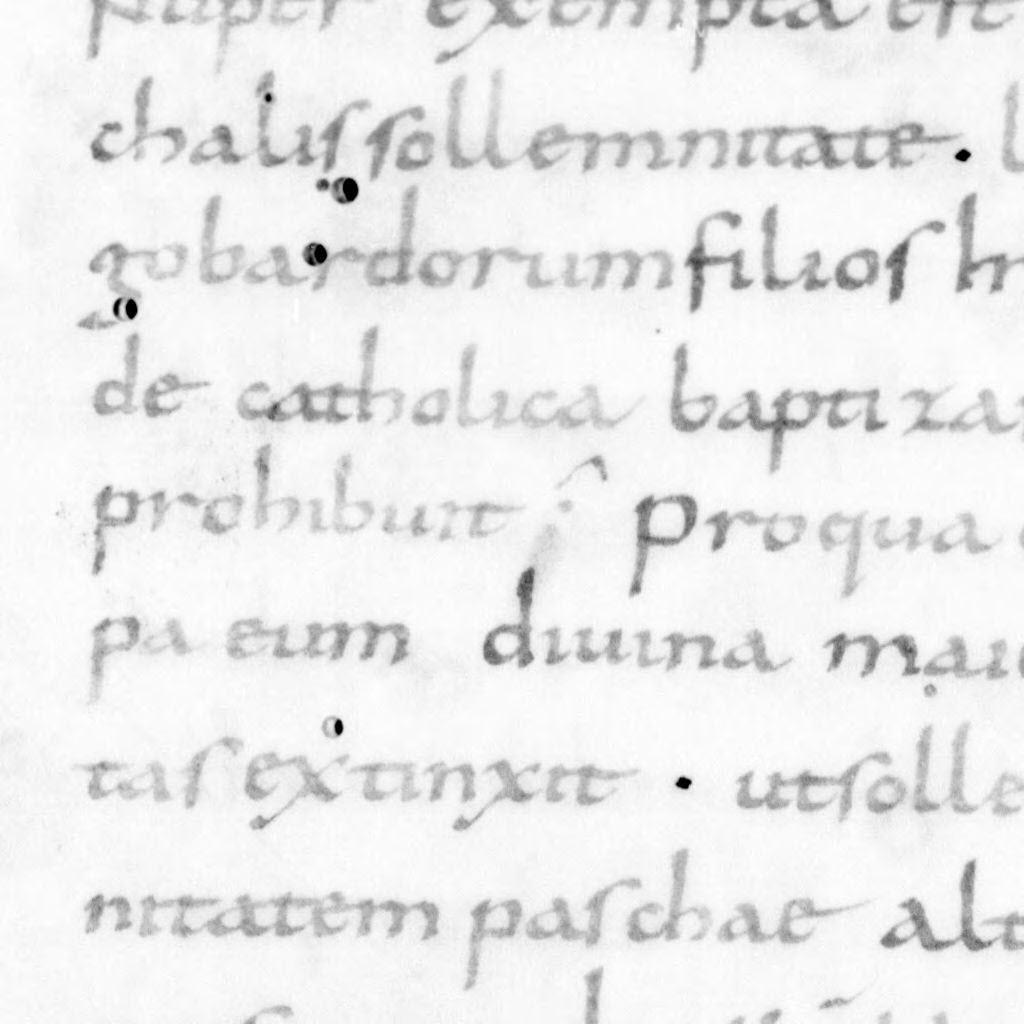 nuper exempta est
chalis sollemnitate. l
gobardorum filios in
de catholica baptiza
prohibuit. Pro qua
pa eum diuina maie
tas extinxit. ut solle
nitatem paschae alt